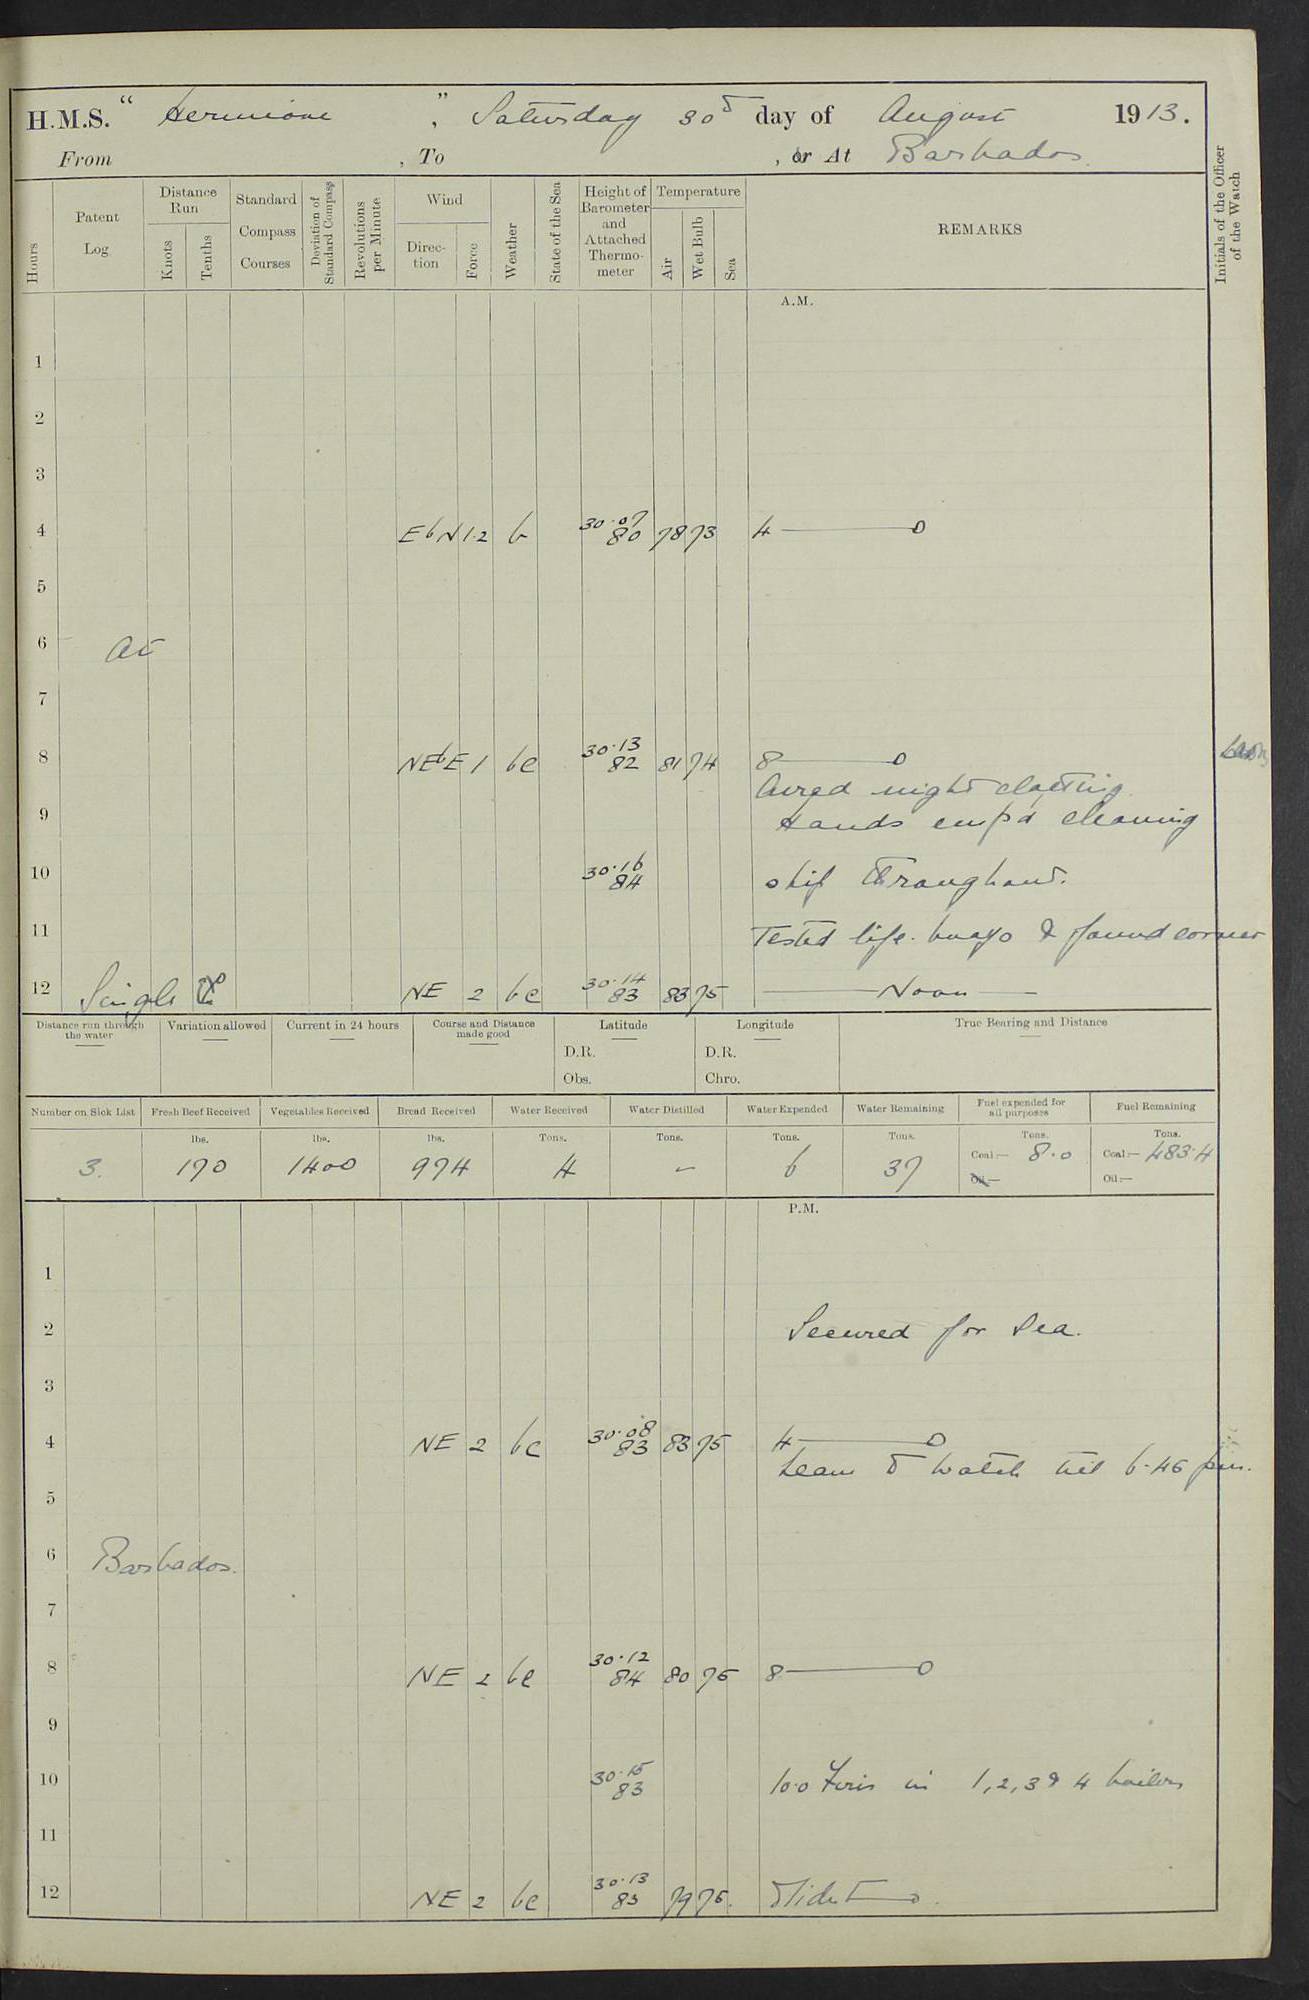 H.M.S. “ Hermione ”, Saturday 30th day of August 1913.
From , To , or At Barbados.
Hours
Patent Log
Distance Run
Knots
Tenths
Standard Compass Courses
Deviation of Standard Compass
Revolutions per Minute
Wind
Direction
Force
Weather
State of the Sea
Height of Barometer and Attached Thermometer
Temperature
Air
Wet Bulb
Sea
REMARKS
Initials of the Officer of the Watch
A.M.
1
2
3
4 EbN 1.2 b 30.07 80 78 73 4
5
6 At
7
8 NEbE 1 bc 30.13 82 81 74 8
Aired night clothing
9 Hands emp'd cleaning
10 30.16 84 ship throughout.
11 Tested life-buoys & found correct
12 Single NE 2 bc 30.14 83 83 75 Noon
Distance run through the water
Variation allowed
Current in 24 hours
Course and Distance made good
Latitude
D.R.
Obs.
Longitude
D.R.
Chro.
True Bearing and Distance
Number on Sick List Fresh Beef Received Vegetables Received Bread Received Water Received Water Distilled Water Expended Water Remaining Fuel expended for all purposes Fuel Remaining
lbs. lbs. lbs. Tons. Tons. Tons. Tons. Tons. Tons.
3. 170 1400 974 4 – 6 37 Coal:— 8.0 Coal:— 483.4
Oil:— Oil:—
P.M.
1
2 Secured for Sea.
3
4 NE 2 bc 30.08 83 83 75 4
Leave to watch till 6.45 pm.
5
6 Barbados.
7
8 NE 2 bc 30.12 84 80 75 8
9
10 30.15 83 10.0 Fires in 1, 2, 3 & 4 boilers
11
12 NE 2 bc 30.13 83 79 75. Midt